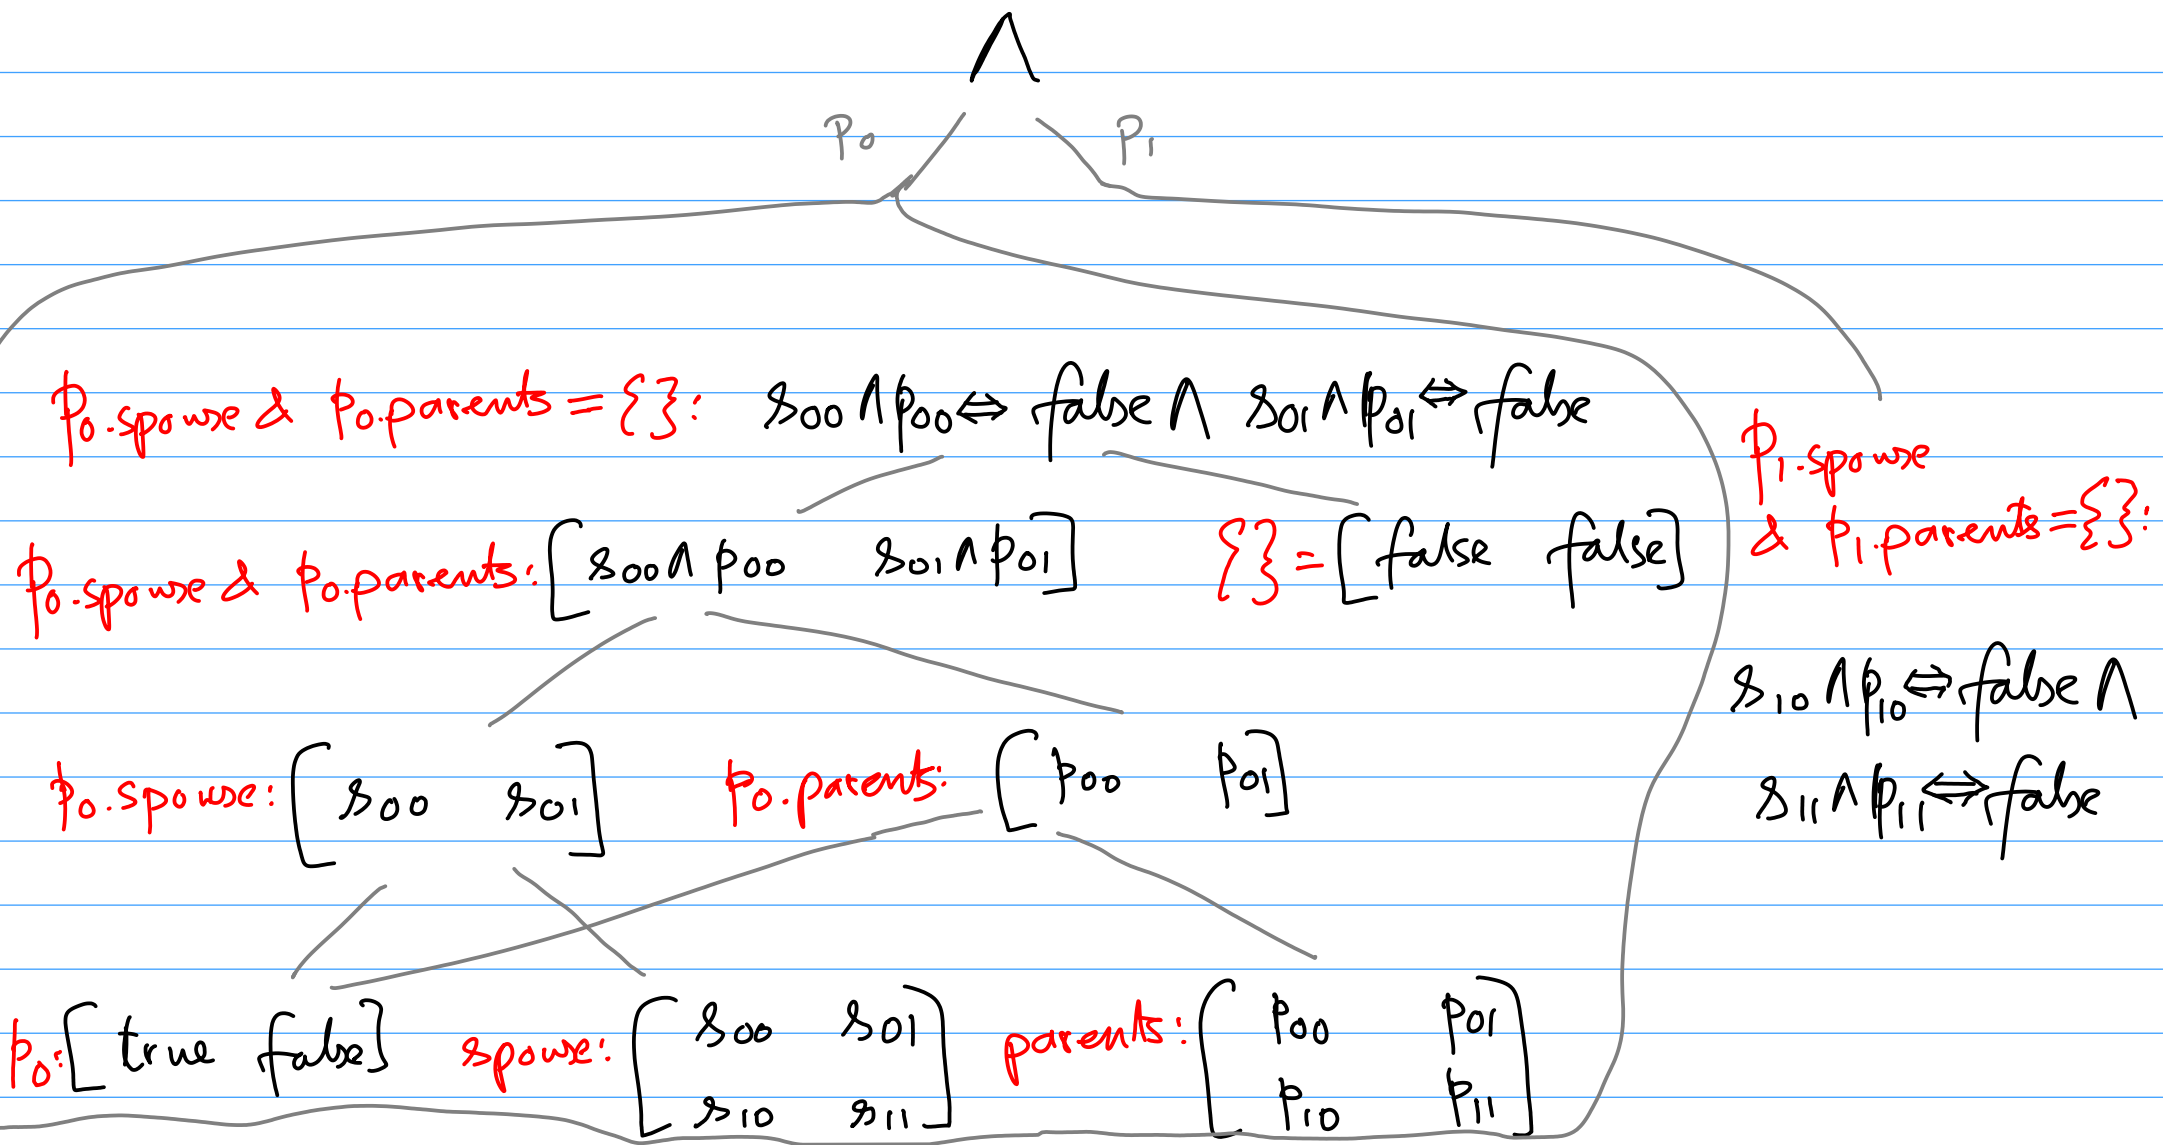 ∧
p₀ p₁
p₀.spouse & p₀.parents = {}: s₀₀ ∧ p₀₀ ⇔ false ∧ s₀₁ ∧ p₀₁ ⇔ false
p₁.spouse
& p₁.parents = {}:
p₀.spouse & p₀.parents: [s₀₀ ∧ p₀₀ s₀₁ ∧ p₀₁] {} = [false false]
s₁₀ ∧ p₁₀ ⇔ false ∧
s₁₁ ∧ p₁₁ ⇔ false
p₀.spouse: [s₀₀ s₀₁] p₀.parents: [p₀₀ p₀₁]
p₀: [true false] spouse: [s₀₀ s₀₁ parents: [p₀₀ p₀₁
s₁₀ s₁₁] p₁₀ p₁₁]